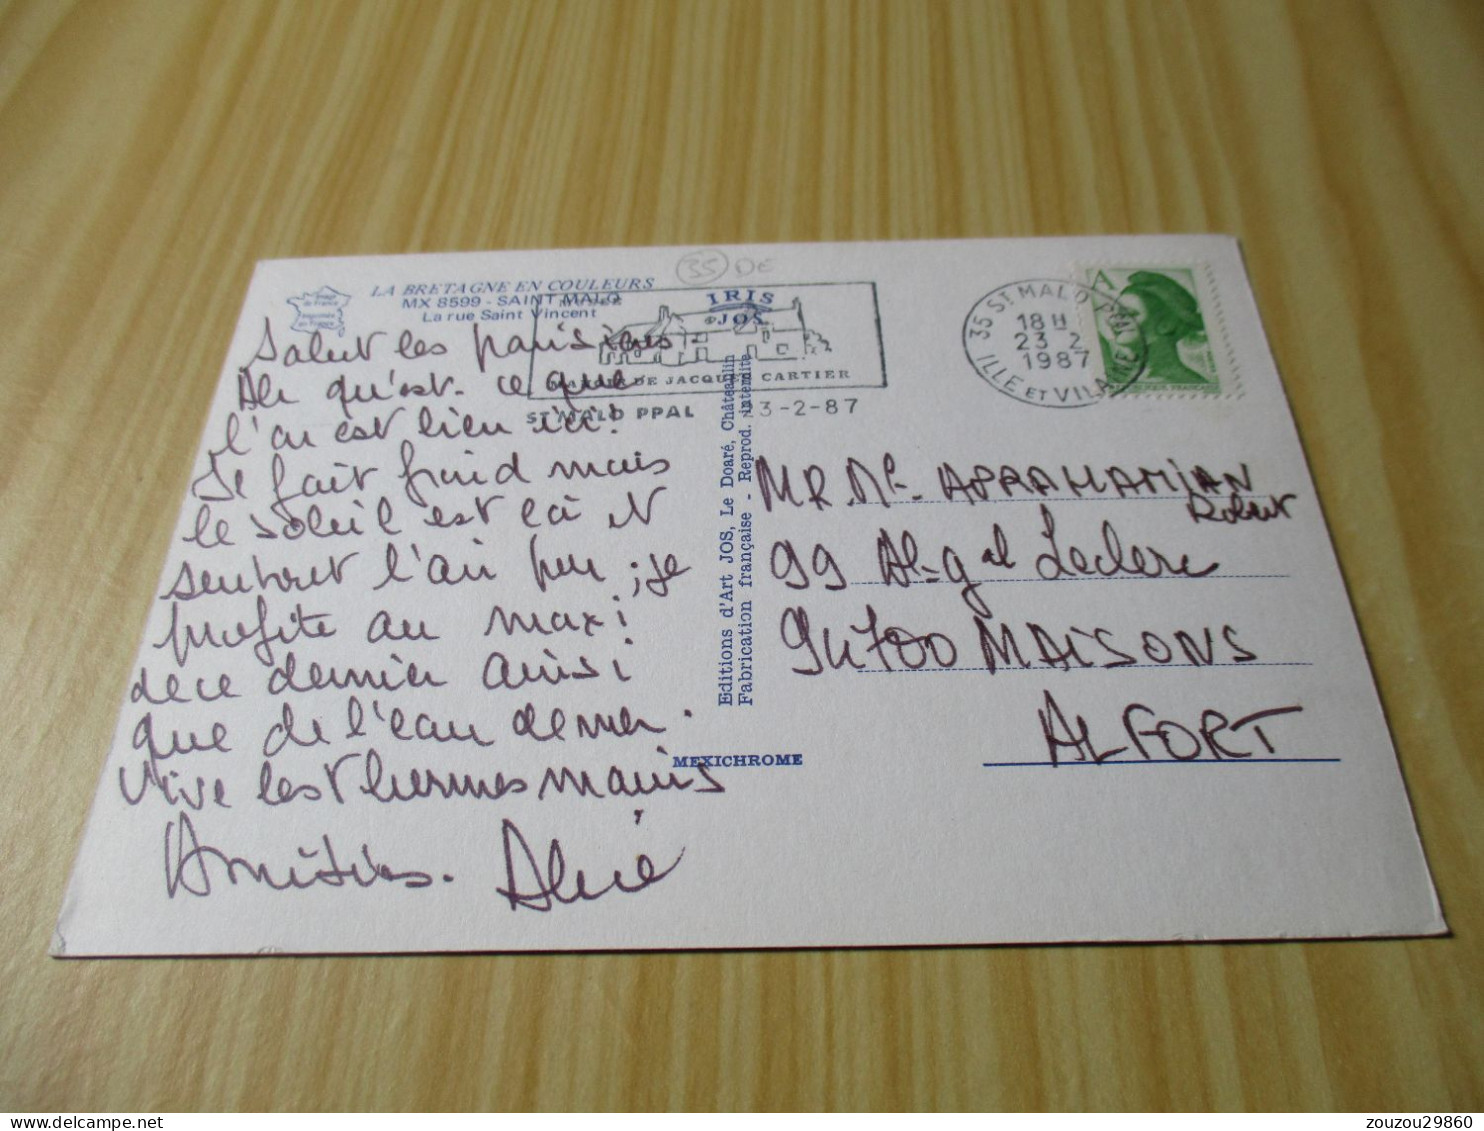 LA BRETAGNE EN COULEURS
MX 8599 - SAINT MALO
La rue Saint Vincent
35 DE
IRIS
JOS
DE JACQUES CARTIER
ST MALO PPAL 23-2-87
35 ST MALO PPAL
18 H
23 2
1987
ILLE ET VILAINE
A
Salut les parisiens.
Ah qu'est-ce que
l'on est bien ici!
Il fait froid mais
le soleil est là et
surtout l'air pur ; je
profite au maxi
de ce dernier ainsi
que de l'eau de mer.
Vive les thermes marins
Amitiés. Alice
Editions d'Art JOS, Le Doaré, Châteaulin
Fabrication française - Reprod. interdite
MEXICHROME
MR. Me. APRAHAMIAN
Robert
99 Av. gal Leclerc
94700 MAISONS
ALFORT
zouzou29860